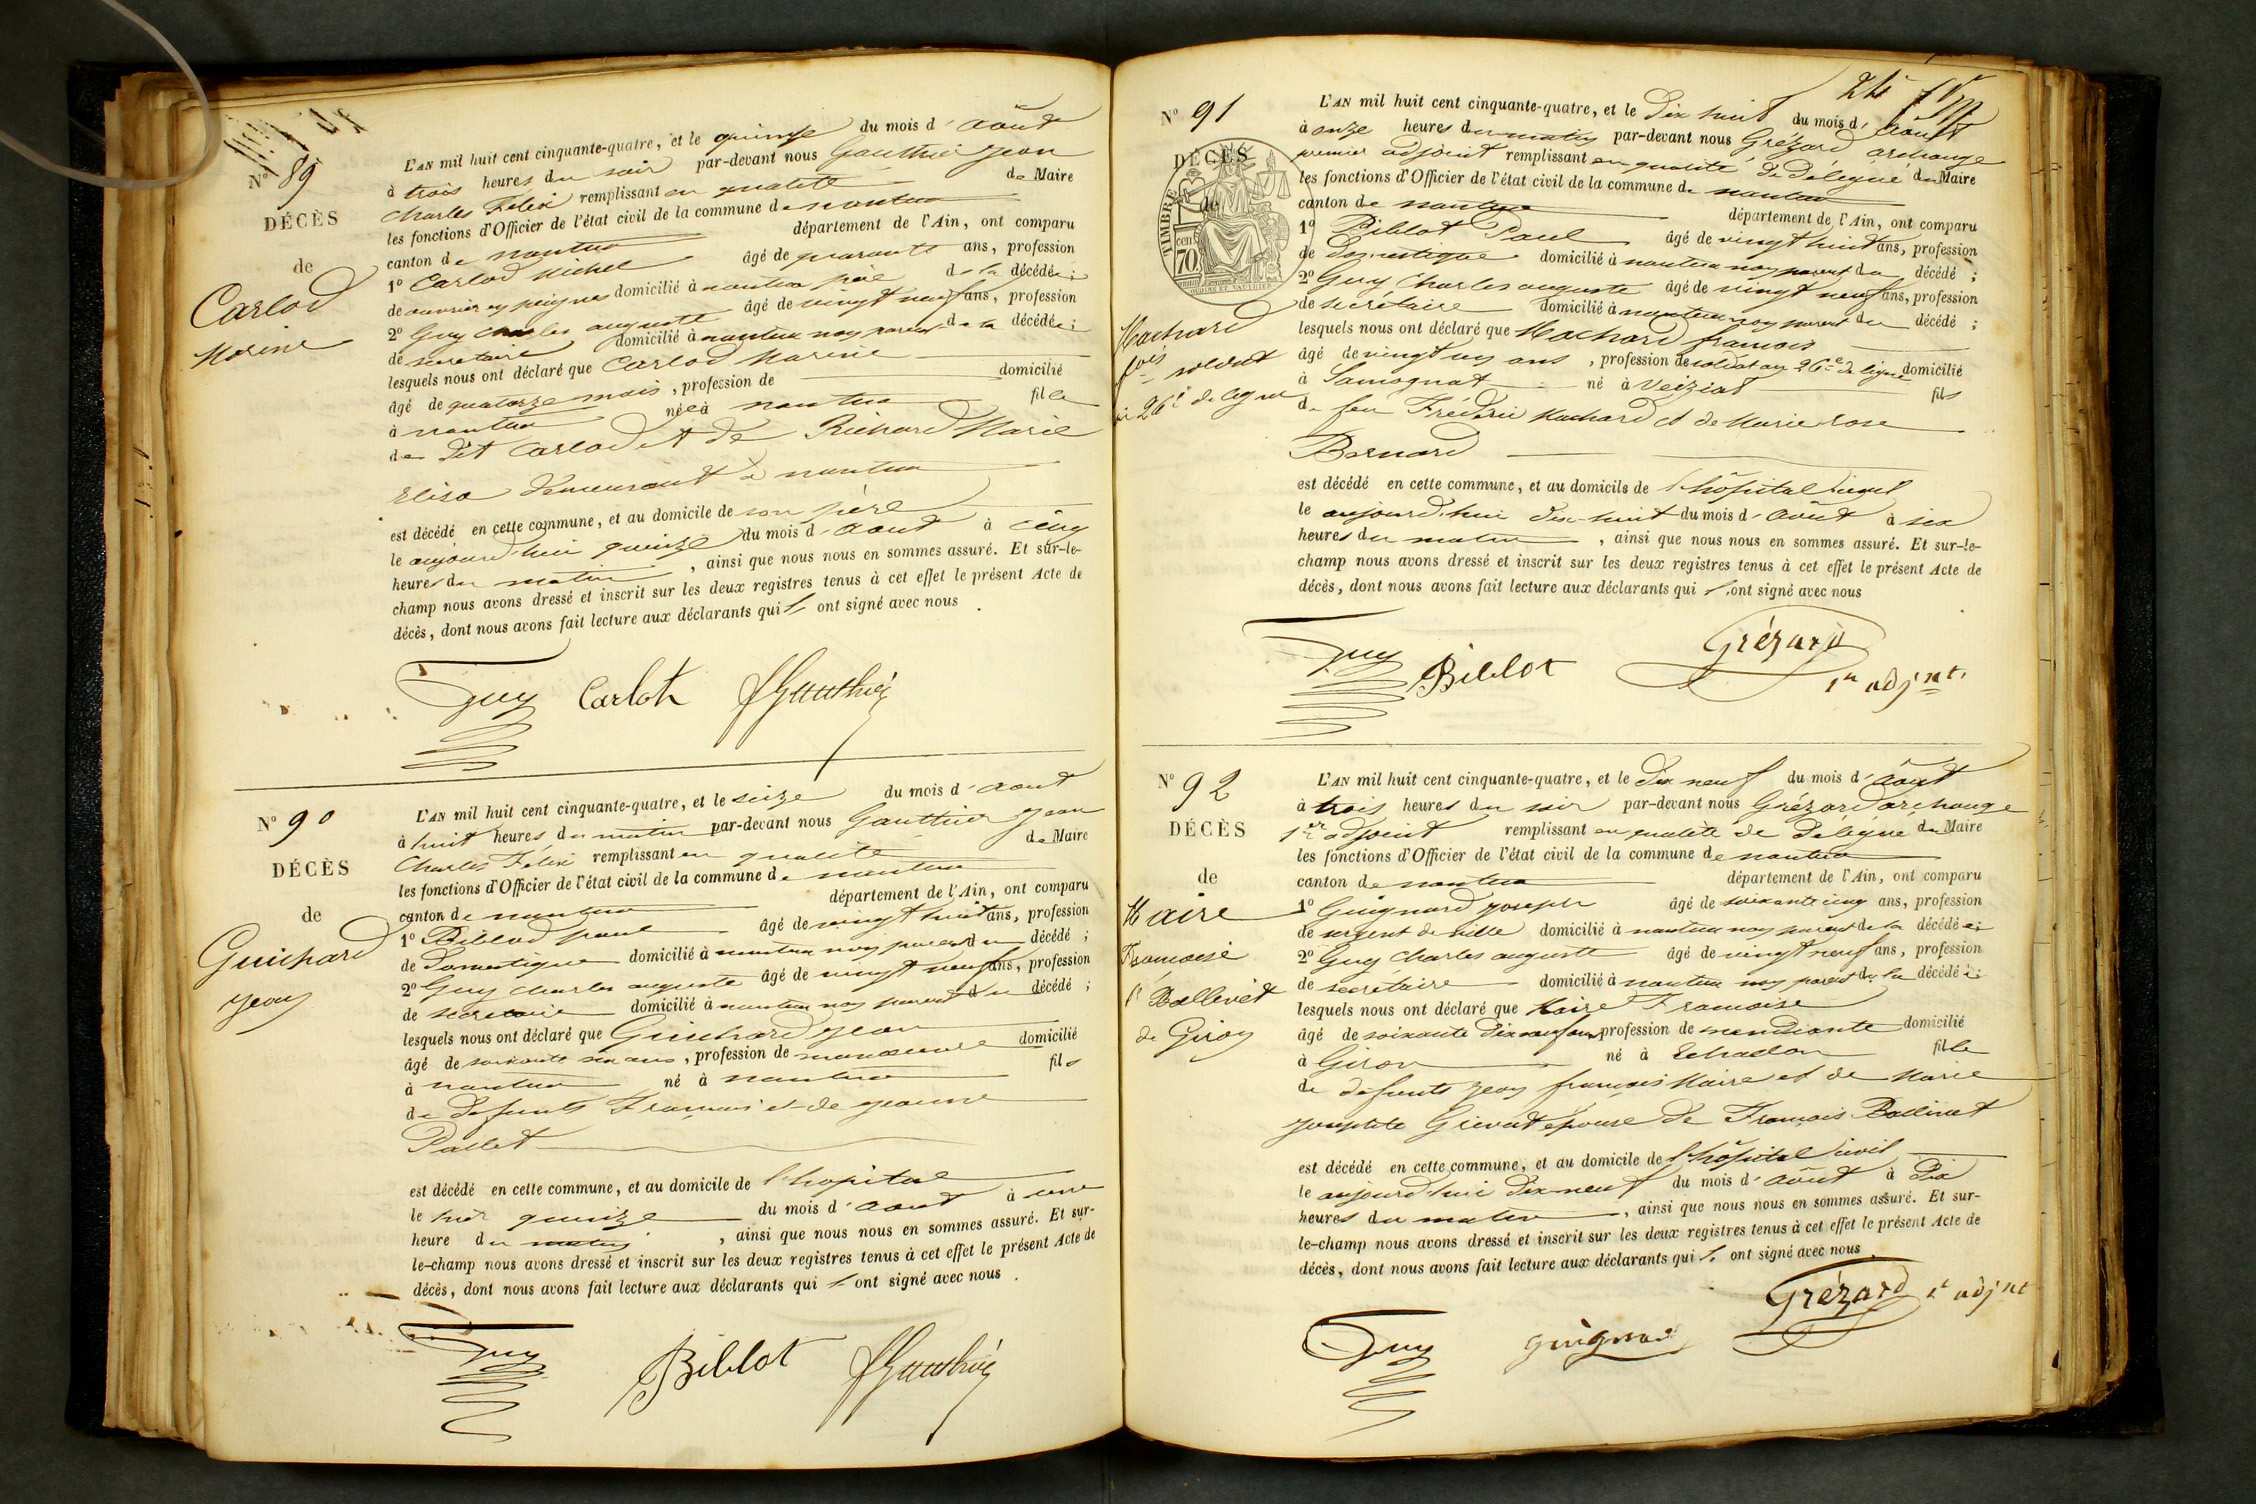 N° 89
DÉCÈS
de
Carlod
Marine
L'AN mil huit cent cinquante-quatre, et le quinze du mois d'août
à trois heures du soir par-devant nous Gauthier Jean
Charles Félix remplissant en qualité de Maire
les fonctions d'Officier de l'état civil de la commune de nantua
canton de nantua département de l'Ain, ont comparu
1° Carlod Michel âgé de quarante ans, profession
de ouvrier en peignes domicilié à nantua père de la décédée;
2° Guy Charles auguste âgé de vingt neuf ans, profession
de secrétaire domicilié à nantua non parent de la décédée;
lesquels nous ont déclaré que Carlod Marine
âgé de quatorze mois, profession de domicilié
à nantua née à nantua fille
de dit Carlod et de Richard Marie
Elisa demeurant à nantua
est décédé en cette commune, et au domicile de son père
le aujourd'hui quinze du mois d'août à cinq
heures du matin, ainsi que nous nous en sommes assuré. Et sur-le-
champ nous avons dressé et inscrit sur les deux registres tenus à cet effet le présent Acte de
décès, dont nous avons fait lecture aux déclarants qui l' ont signé avec nous.
Guy Carlot Gauthier
N° 90
DÉCÈS
de
Guichard
Jean
L'AN mil huit cent cinquante-quatre, et le seize du mois d'août
à huit heures du matin par-devant nous Gauthier Jean
Charles Félix remplissant en qualité de Maire
les fonctions d'Officier de l'état civil de la commune de nantua
canton de nantua département de l'Ain, ont comparu
1° Biblod paul âgé de vingt huit ans, profession
de domestique domicilié à nantua non parent du décédé;
2° Guy Charles auguste âgé de vingt neuf ans, profession
de secrétaire domicilié à nantua non parent du décédé;
lesquels nous ont déclaré que Guichard Jean
âgé de soixante six ans, profession de manoeuvre domicilié
à nantua né à nantua fils
de défunts François et de Jeanne
Pallet
est décédé en cette commune, et au domicile de l'hopital
le hier quinze du mois d'août à une
heure du matin, ainsi que nous nous en sommes assuré. Et sur-
le-champ nous avons dressé et inscrit sur les deux registres tenus à cet effet le présent Acte de
décès, dont nous avons fait lecture aux déclarants qui l' ont signé avec nous.
Guy Biblot Gauthier
24
N° 91
DÉCÈS
de
TIMBRE
cen.
70
Machard
fois soldat
au 26e de ligne
L'AN mil huit cent cinquante-quatre, et le dix huit du mois d'août
à onze heures du matin par-devant nous Grézard archange
premier adjoint remplissant en qualité de délégué du Maire
les fonctions d'Officier de l'état civil de la commune de nantua
canton de nantua département de l'Ain, ont comparu
1° Biblot Paul âgé de vingt huit ans, profession
de domestique domicilié à nantua non parent du décédé;
2° Guy Charles auguste âgé de vingt neuf ans, profession
de secrétaire domicilié à nantua non parent du décédé;
lesquels nous ont déclaré que Machard francois
âgé de vingt un ans, profession de soldat au 26e de ligne domicilié
à Samognat né à Veiziat fils
de feu Frédéric Machard et de Marie rose
Bernard
est décédé en cette commune, et au domicile de l'hôpital civil
le aujourd'hui dix-huit du mois d'août à six
heures du matin, ainsi que nous nous en sommes assuré. Et sur-le-
champ nous avons dressé et inscrit sur les deux registres tenus à cet effet le présent Acte de
décès, dont nous avons fait lecture aux déclarants qui l'ont signé avec nous
Guy Biblot Grézard
1er adjnt.
N° 92
DÉCÈS
de
Maire
Francoise
fe Ballivet
de Giron
L'AN mil huit cent cinquante-quatre, et le dix neuf du mois d'août
à trois heures du soir par-devant nous Grézard archange
1er adjoint remplissant en qualité de délégué du Maire
les fonctions d'Officier de l'état civil de la commune de nantua
canton de nantua département de l'Ain, ont comparu
1° Guignard joseph âgé de soixante cinq ans, profession
de sergent de ville domicilié à nantua non parent de la décédée;
2° Guy Charles auguste âgé de vingt neuf ans, profession
de secrétaire domicilié à nantua non parent de la décédée;
lesquels nous ont déclaré que Maire Francoise
âgé de soixante dix neuf ans, profession de mendiante domicilié
à Giron né à Echallon fille
de défunts Jean françois Maire et de Marie
josephte Grevat épouse de François Ballivet
est décédé en cette commune, et au domicile de l'hôpital civil
le aujourd'hui dix neuf du mois d'août à dix
heures du matin, ainsi que nous nous en sommes assuré. Et sur-
le-champ nous avons dressé et inscrit sur les deux registres tenus à cet effet le présent Acte de
décès, dont nous avons fait lecture aux déclarants qui l' ont signé avec nous.
Guy guignard Grézard 1er adjnt